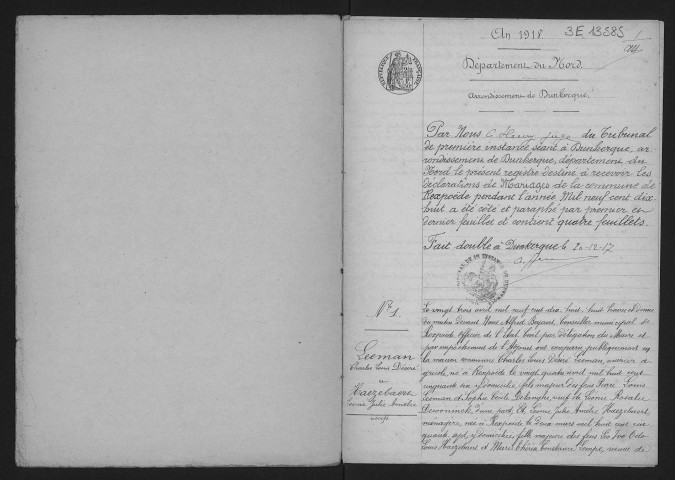 An 1918.
3E 13585
1
Département du Nord.
Arrondissement de Dunkerque.
Par Nous juge du Tribunal
de première instance séant à Dunkerque, ar-
rondissement de Dunkerque, département du
Nord le présent registre destiné à recevoir les
déclarations de Mariages de la commune de
Rexpoëde pendant l'année Mil neuf cent dix-
huit a été coté et paraphé par premier et
dernier feuillet et contient quatre feuillets.
Fait double à Dunkerque le 20-12-17
N° 1.
Leeman
Charles Louis Désiré
&
Haezebaert
Léonie Julie Amélie
Le vingt trois avril mil neuf cent dix huit, huit heures et demie
du matin devant Nous Alfred Conseiller municipal de
Rexpoëde officier de l'état civil par délégation du Maire et
par empêchement de l'Adjoint ont comparu publiquement en
la maison commune Charles Louis Désiré Leeman, ouvrier a-
gricole, né à Rexpoëde le vingt quatre avril mil huit cent
cinquante six y domicilié, fils majeur des feus Louis
Leeman et Sophie veuf de Léonie Rosalie
d'une part, Et Léonie Julie Amélie Haezebaert,
ménagère, née à Rexpoëde le deux mars mil huit cent cin-
quante sept y domiciliée, fille majeure des feus Ivo
Louis Haezebaert et Marie Thérèse Constance veuve de